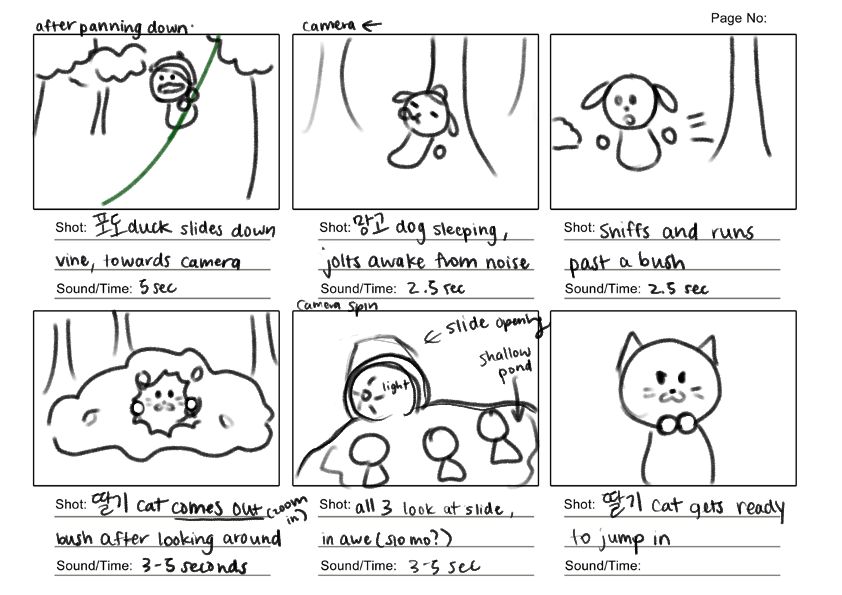 Page No:
after panning down.
Shot: 포도 duck slides down
vine, towards camera
Sound/Time: 5 sec
Camera ←
Shot: 망고 dog sleeping,
jolts awake from noise
Sound/Time: 2.5 sec
Shot: Sniffs and runs
past a bush
Sound/Time: 2.5 sec
Shot: 딸기 cat comes out (zoom in)
bush after looking around
Sound/Time: 3-5 seconds
Camera spin
← slide opening
shallow
pond
light
Shot: all 3 look at slide,
in awe (slo mo?)
Sound/Time: 3-5 sec
Shot: 딸기 cat gets ready
to jump in
Sound/Time: